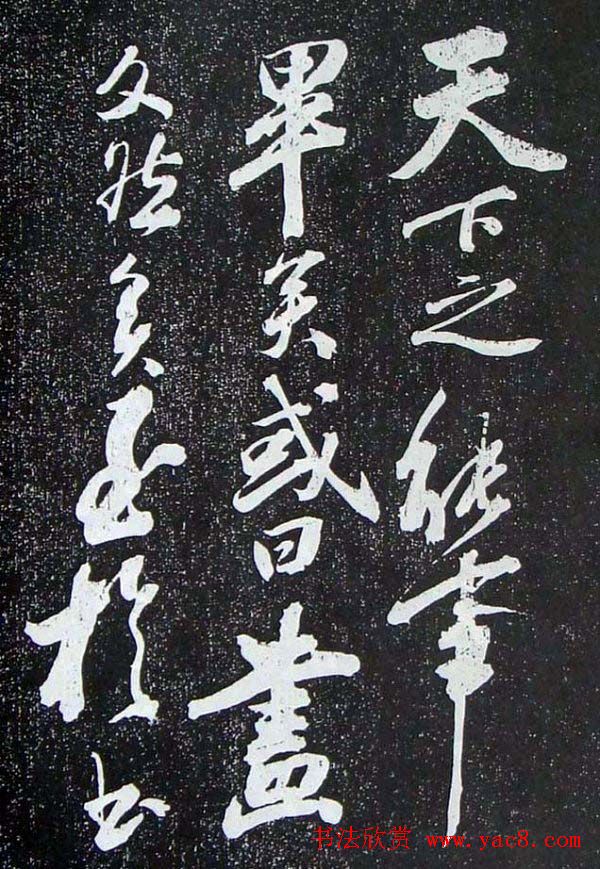 天下之能事
畢矣或曰畫
文然矣至於書
书法欣赏 www.yac8.com